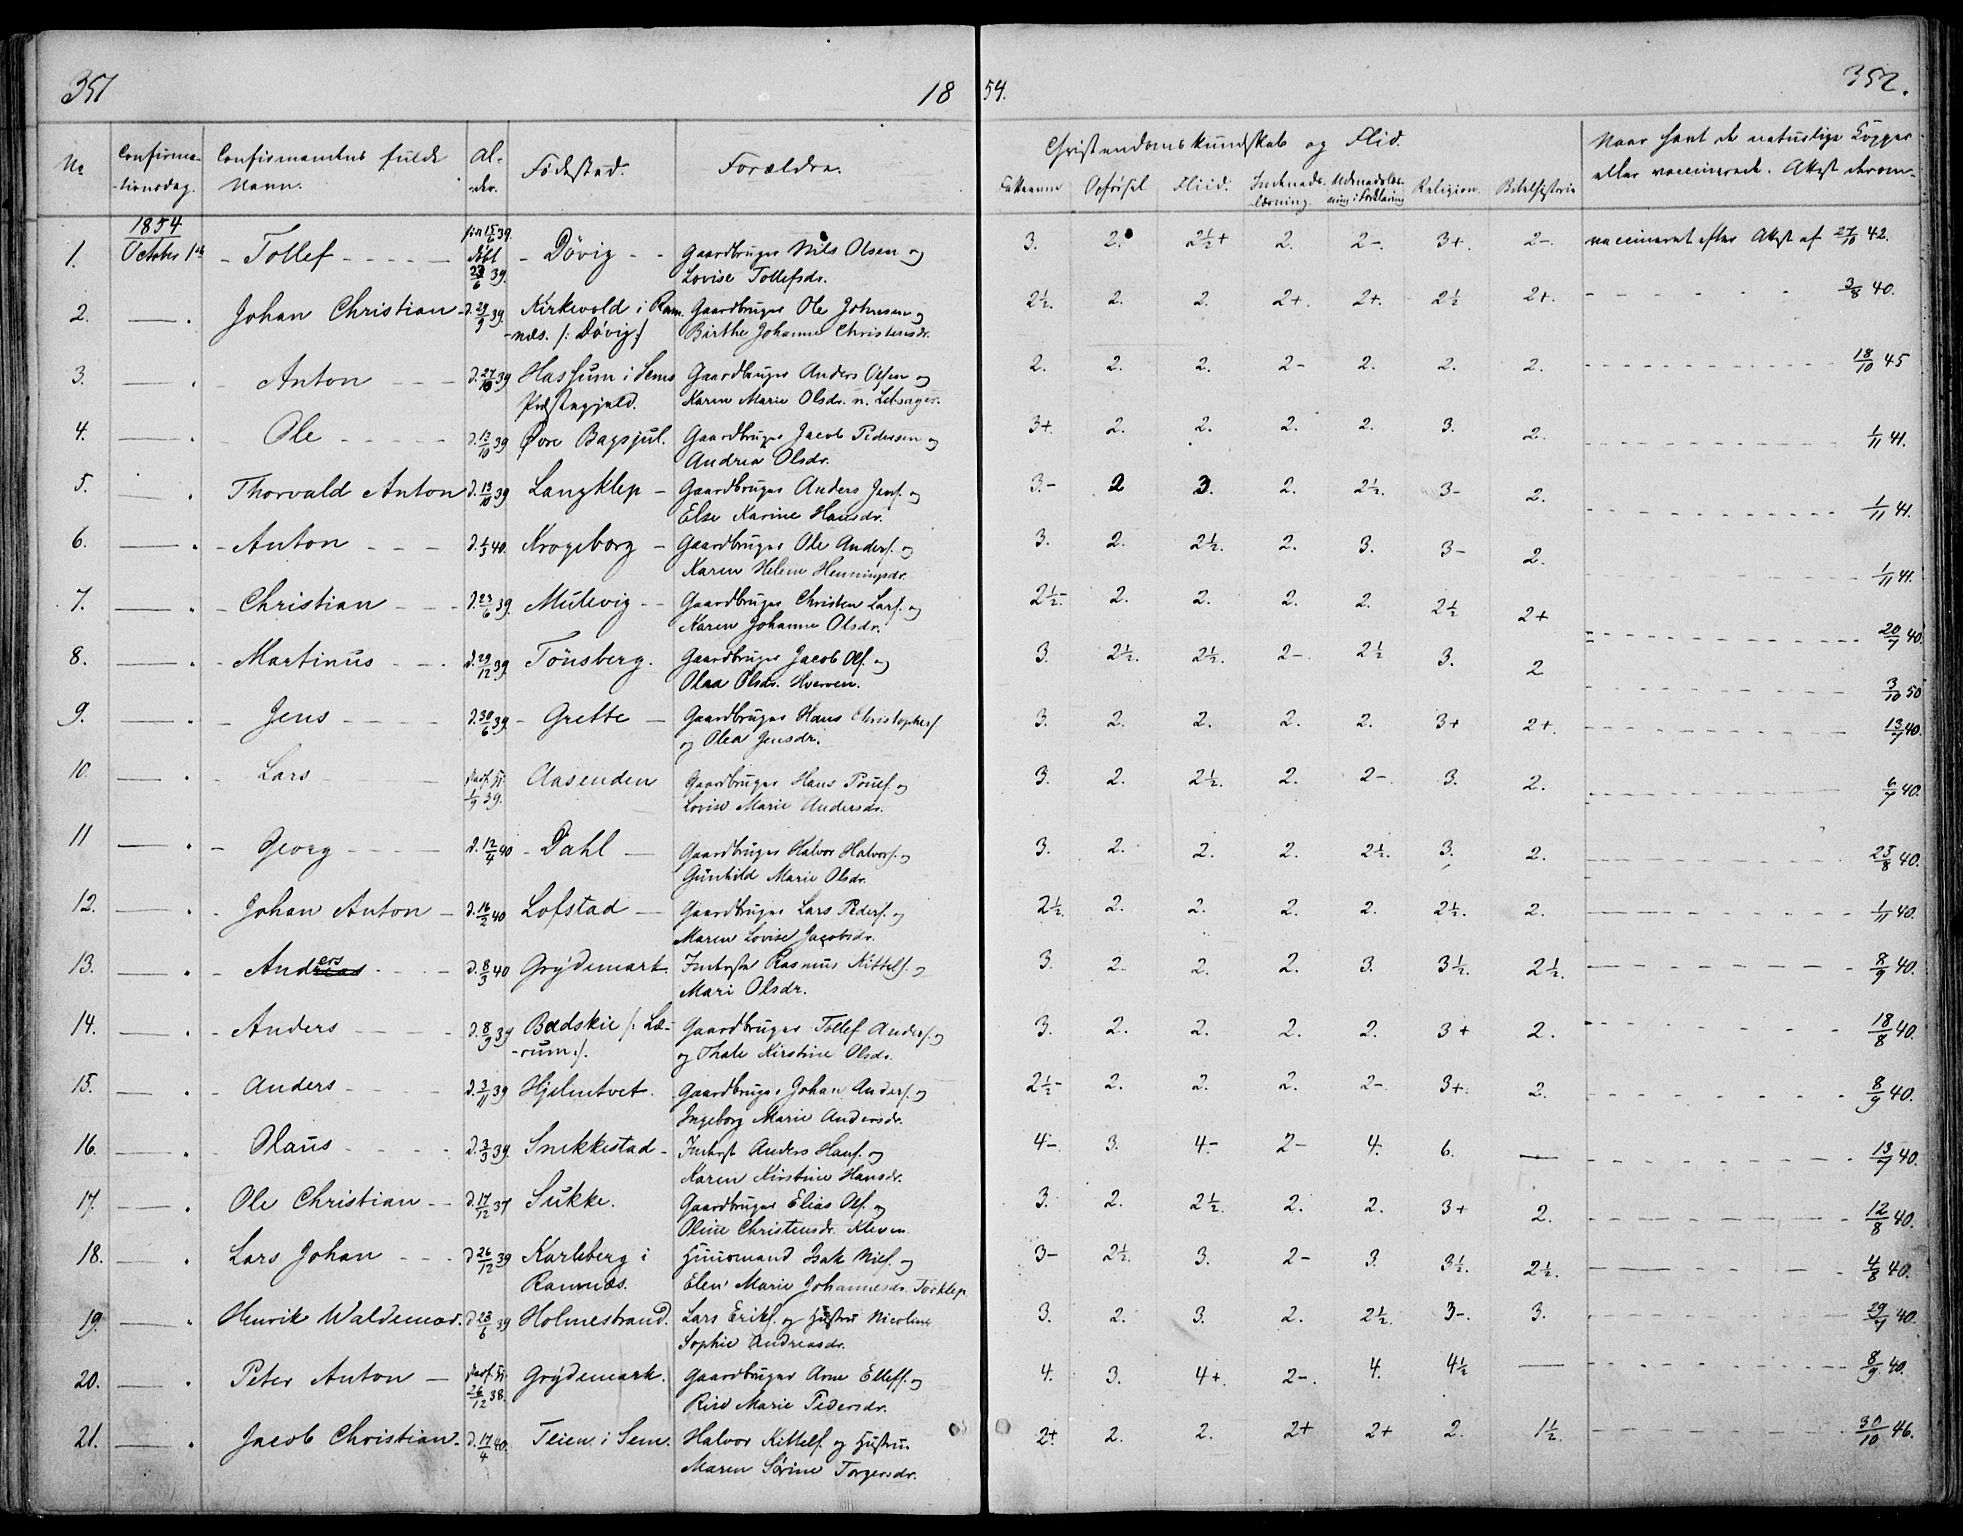 351
18
54.
352.
No
Confirma-
-tionsdag.
Confirmandens fulde
Navn.
Al-
-der.
Fødested.
Forældre.
Christendomskundskab og Flid.
Fatteevne
Opførsel
Fliid.
Indenads-
-læsning.
Religion.
Bibelhistorie
Naar havt de naturlige Kopper
eller vaccinerede. Attest derom.
1854
1. October 1ste Tollef 15/6 39. døbt 23/6 39. Døvig Gaardbruger Nils Olsen og 3. 2. 2½+ 2. 2-. 3+. 2-. vaccineret efter Attest af 27/10 42.
Lovise Tollefsdr.
2. Johan Christian d. 29/9 39. Kirkevold i Ram- Gaardbruger Ole Johnsen og 2½. 2. 2. 2+. 2+. 2½ 2+. 3/8 40.
-næs. /: Døvig :/ Birthe Johanne Christensdr.
3. Anton d. 27/10 39 Hassum i Sems Gaardbruger Anders Olsen og 2. 2. 2. 2- 2. 2. 2. 18/10 45
Præstegjeld. Karen Marie Olsdr.
4. Ole d. 13/10 39 Øvre Bagsjul. Gaardbruger Jacob Pedersen og 3+. 2. 2. 2. 2. 3. 2. 1/11 41.
Andrea Olsdr.
5. Thorvald Anton d. 13/10 39 Langklep Gaardbruger Anders Jens. og 3.- 2 3. 2. 2½. 3- 2. 1/11 41.
Else Karine Hansdr.
6. Anton d. 1/5 40. Krogeborg Gaardbruger Ole Anders. og 3. 2. 2½. 2. 3. 3- 2. 1/11 41.
Karen Helene Henningsdr.
7. Christian d. 23/6 39. Mulevig Gaardbruger Christen Lars. og 2½-. 2. 2. 2. 2. 2½ 2+ 20/7 40.
Karen Johanne Olsdr.
8. Martinus d. 29/12 39. Tønsberg. Gaardbruger Jacob Ols. og 3. 2½. 2½. 2-. 2½ 3. 2 3/10 50
Olaa Olsdr. Hverven.
9. Jens d. 30/6 39. Grette Gaardbruger Hans Christophers. 3. 2. 2. 2. 2. 3+ 2+. 13/7 40.
og Olea Jensdr.
10. Lars 1/9 39. Aasenden Gaardbruger Hans Pouls. og 3. 2. 2½. 2. 2-. 3. 2. 6/7 40.
Lovise Marie Andersdr.
11 Georg d. 12/4 40 Dahl Gaardbruger Halvor Halvors. og 3. 2. 2. 2. 2½. 3. 2. 25/8 40.
Gunhild Marie Olsdr.
12. Johan Anton d. 16/2 40 Lofstad Gaardbruger Lars Peders. og 2½. 2. 2. 2. 2. 2½. 2. 1/11 40.
Maren Lovise Jacobsdr.
13. Anders d. 8/3 40 Grydemark Inderste Rasmus Kittels. og 3. 2. 2. 2. 3. 3½. 2½. 8/9 40.
Mari Olsdr.
14. Anders d. 8/9 39 Bødskie /: Læ- Gaardbruger Tollef Anders. og 3. 2. 2. 2. 2. 3+ 2. 18/8 40.
-rum :/. og Thale Kirstine Olsdr.
15. Anders d. 3/11 39 Hjelmtvet. Gaardbruger Johan Anders. og 2½- 2. 2. 2. 2-. 3+. 2. 8/9 40.
Ingeborg Marie Andersdr.
16. Olaus d. 3/3 39. Snekkestad Inderst Anders Hans. og 4-. 3. 4-. 2- 4. 6. — 13/7 40.
Karen Kirstine Hansdr.
17. Ole Christian d. 17/12 37 Sukke. Gaardbruger Elias Ols. og 3. 2. 2½. 2. 2. 3+ 2. 12/8 40.
Oline Christensdr. Kleven
18. Lars Johan d. 26/12 39 Karlsberg i Huusmand Isak Niels. og 3- 2½. 3. 2- 3. 3½. 2½. 4/8 40.
Ramnæs. Elen Marie Johannesdr. Torklep
19. Henrik Waldemar. d. 23/6 39 Holmestrand. Lars Eriks. og Hustru Nicoline 3. 2. 3. 2. 2½. 3-. 3. 29/7 40.
Sophie Andreasdr.
20. Peter Anton 26/12 38. Grydemark. Gaardbruger Arne Ellefs. og 4. 3. 4+. 2-. 4. 4½ — 8/9 40.
Marie Pedersdr.
21. Jacob Christian d. 17/4 40. Teien i Sem. Halvor Kittels. og Hustru 2+. 2. 2. 2+ 2+ 2. 1½. 30/10 46.
Maren Sørine Torgersdr.